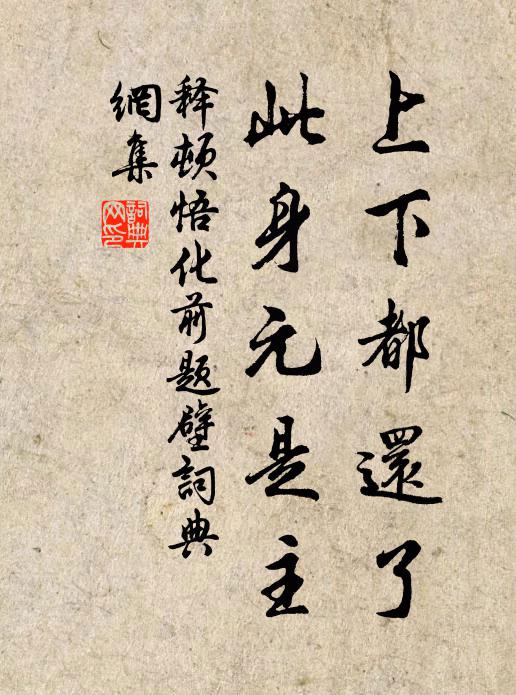 上下都還了
此身元是主
释頓悟化前题壁詞典
網集
詞典
网印